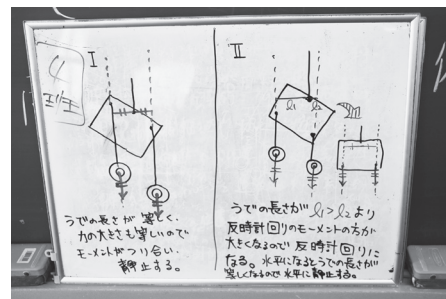 I
うでの長さが等しく、
力の大きさも等しいので
モーメントがつり合い、
静止する。
II
l₁
l₂
うでの長さが l₁>l₂ より
反時計回りのモーメントの方が
大きくなるので 反時計回りに
なる。水平になるとうでの長さが
等しくなるので水平に静止する。